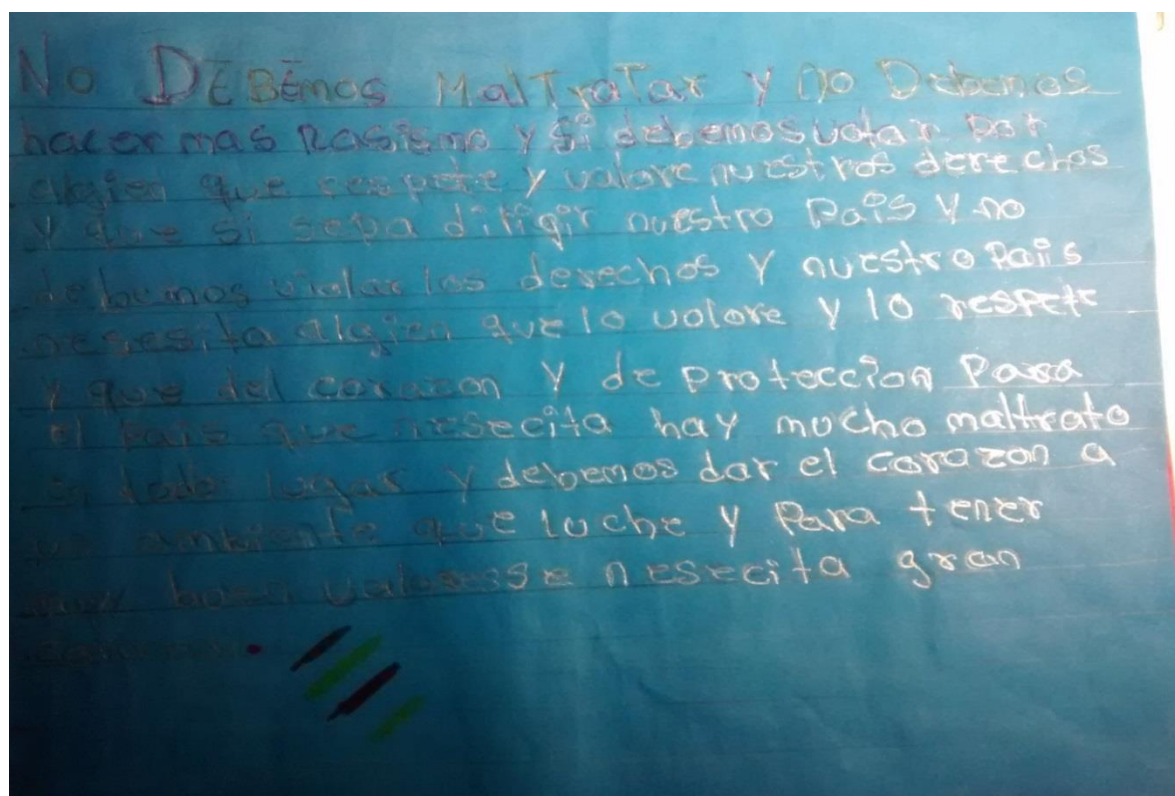 No DEBEmos MalTraTar y no Debemos
hacer mas Rasismo y si debemos votar Por
algien que respete y valore nuestros derechos
y que si sepa dirigir nuestro Pais y no
debemos violar los derechos y nuestro Pais
nesesita algien que lo valore y lo respete
y que del corazon y de proteccion Para
el Pais que nesecita hay mucho maltrato
lugar y debemos dar el corazon a
ambiente que luche y Para tener
buen se nesecita gran